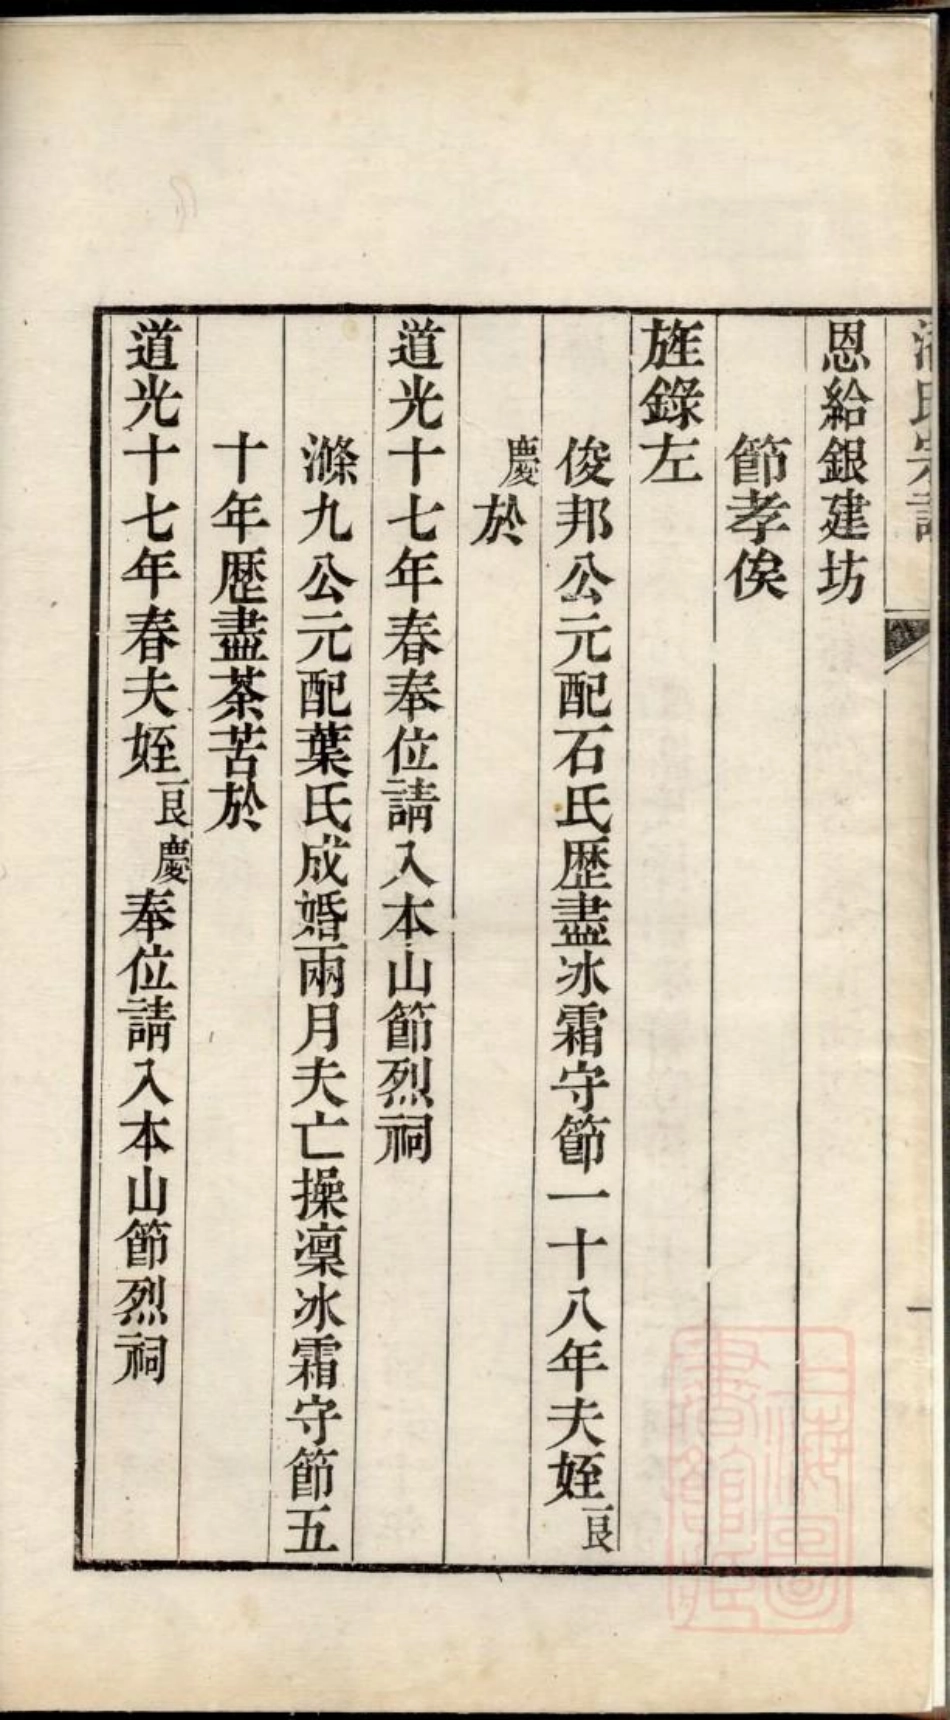 氏宗譜
一
恩給銀建坊
節孝俟
旌錄左
俊邦公元配石氏歴盡冰霜守節一十八年夫姪良
慶於
道光十七年春奉位請入本山節烈祠
滌九公元配葉氏成婚兩月夫亡操凜冰霜守節五
十年歴盡茶苦於
道光十七年春夫姪良慶奉位請入本山節烈祠
上海圖書館藏